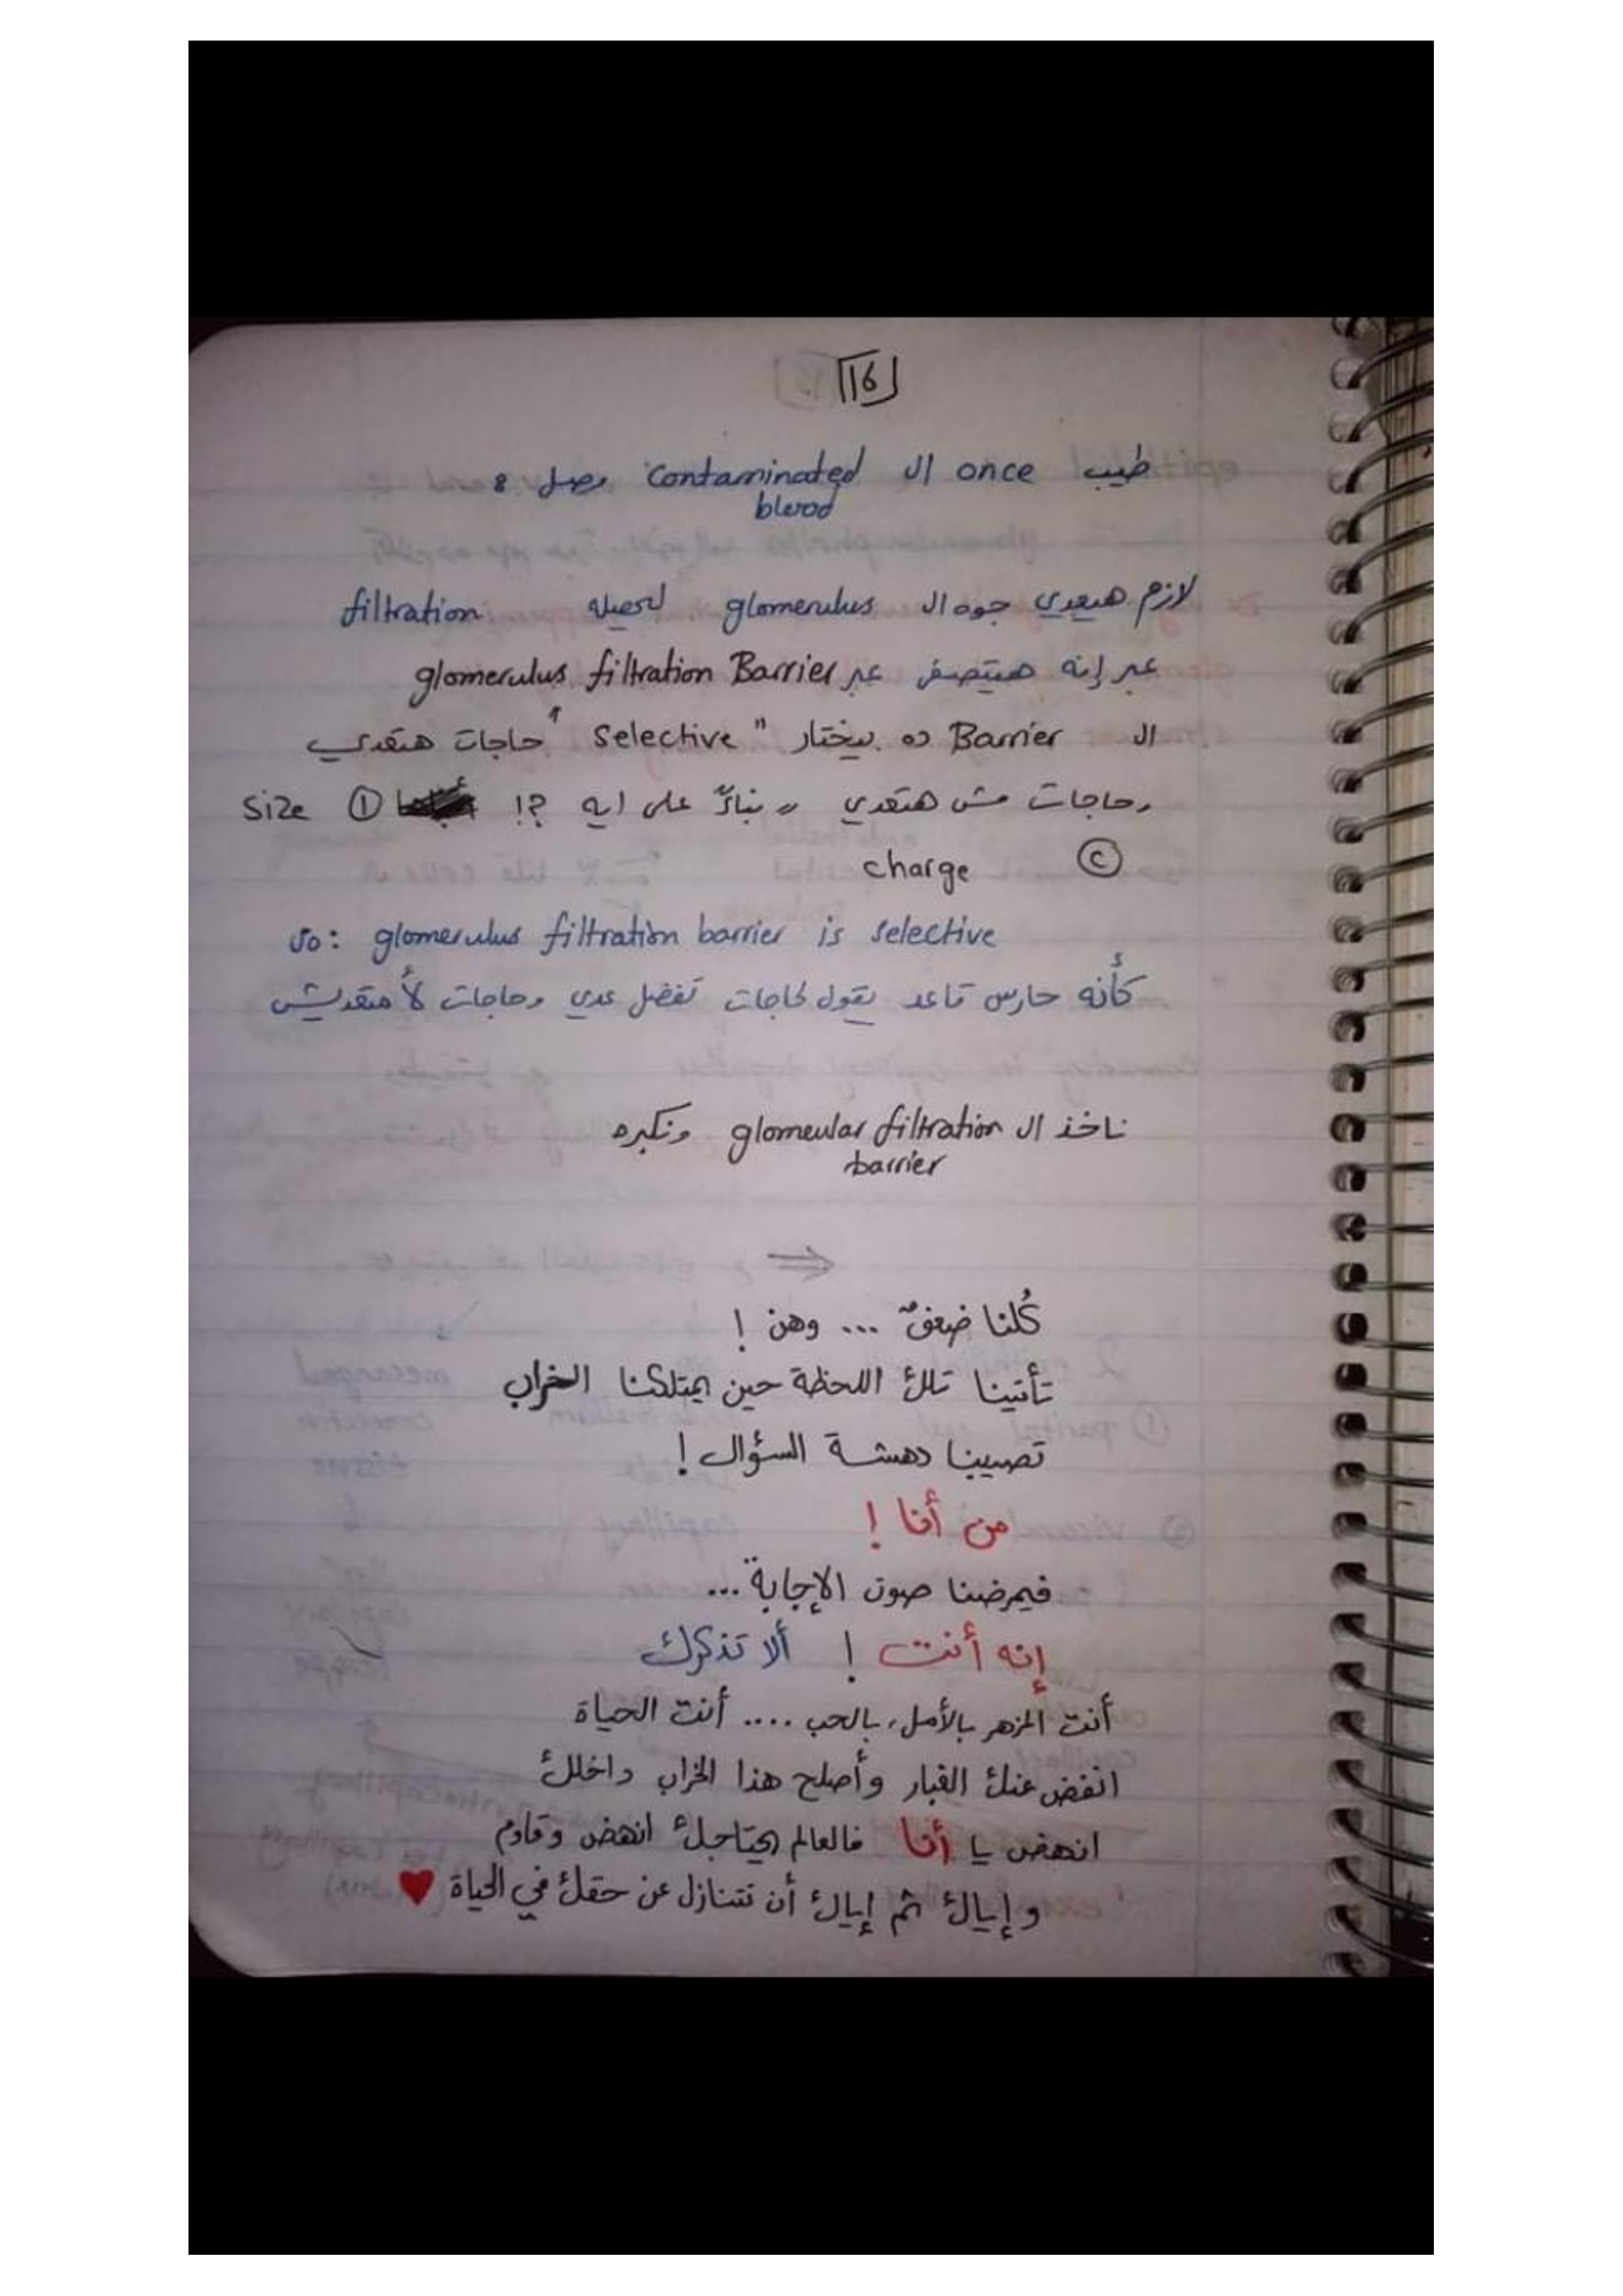 16
طيب once ال contaminated blood وصل :
لازم هيعدي جوه ال glomerulus ليحصله filtration
عبر إنه هيتصفى عبر glomerulus filtration Barrier
ال Barrier ده بيختار "selective" حاجات هتعدي
وحاجات مش هتعدي ,, بناءً على ايه ?! ① size
② charge
so: glomerulus filtration barrier is selective
كأنه حارس قاعد يقول لحاجات تفضل عدي وحاجات لأ متعديش
ناخذ ال glomeular filtration barrier ونكبره
⇒
كُلنا ضعفٌ ... وهن !
تأتينا تلك اللحظة حين يمتلكنا الخراب
تصيبنا دهشة السؤال !
من أنا !
فيمرضنا صوت الإجابة ...
إنه أنت ! ألا تذكرك
أنت المزهر بالأمل، بالحب .... أنت الحياة
انفض عنك الغبار وأصلح هذا الخراب داخلك
انهض يا أنا فالعالم يحتاجك انهض وقاوم
و إياك ثم إياك أن تتنازل عن حقك في الحياة ♥